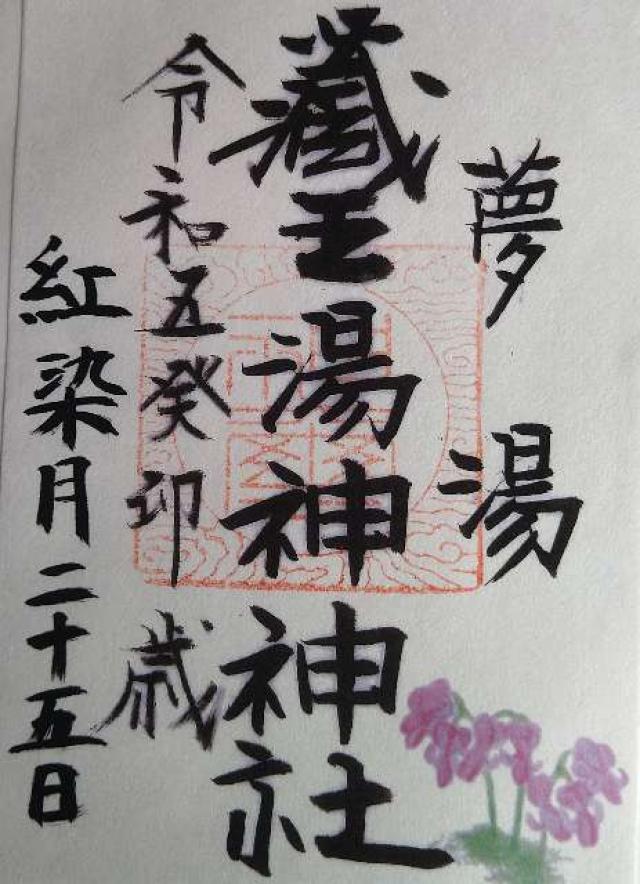 夢湯
藏王湯神神社
令和五癸卯歳
紅染月二十五日